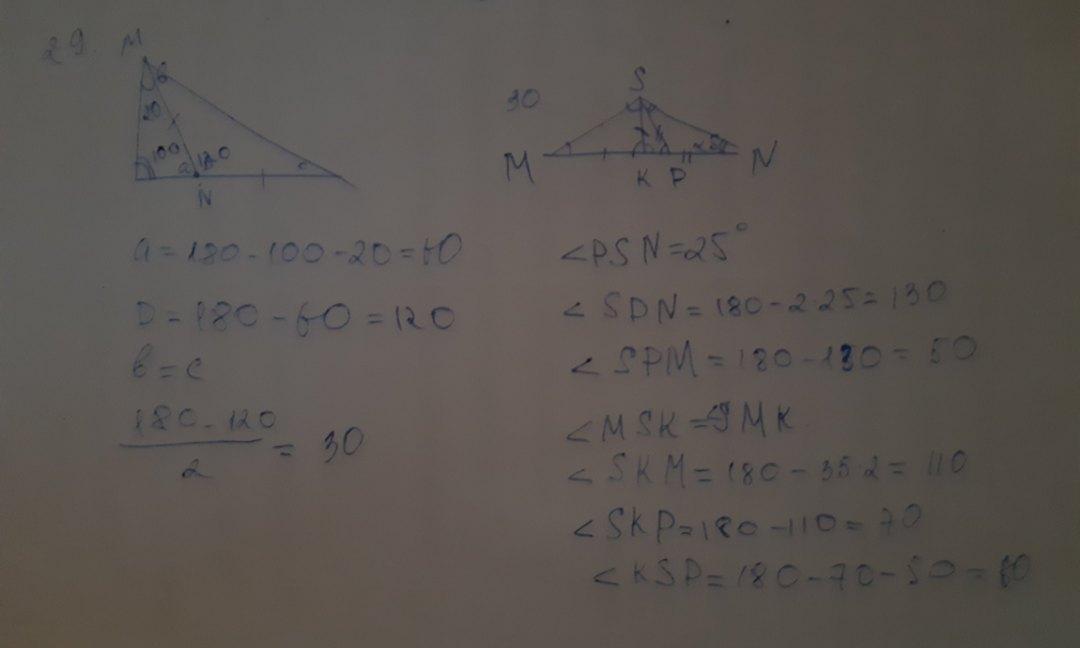 29.
M
b
20
100 a 120 c
N
a = 180 - 100 - 20 = 60
D = 180 - 60 = 120
b = c
180 - 120
2
= 30
30
S
M 25 N
K P
∠PSN = 25°
∠SPN = 180 - 2·25 = 130
∠SPM = 180 - 130 = 50
∠MSK = SMK
∠SKM = 180 - 35·2 = 110
∠SKP = 180 - 110 = 70
∠KSP = 180 - 70 - 50 = 60